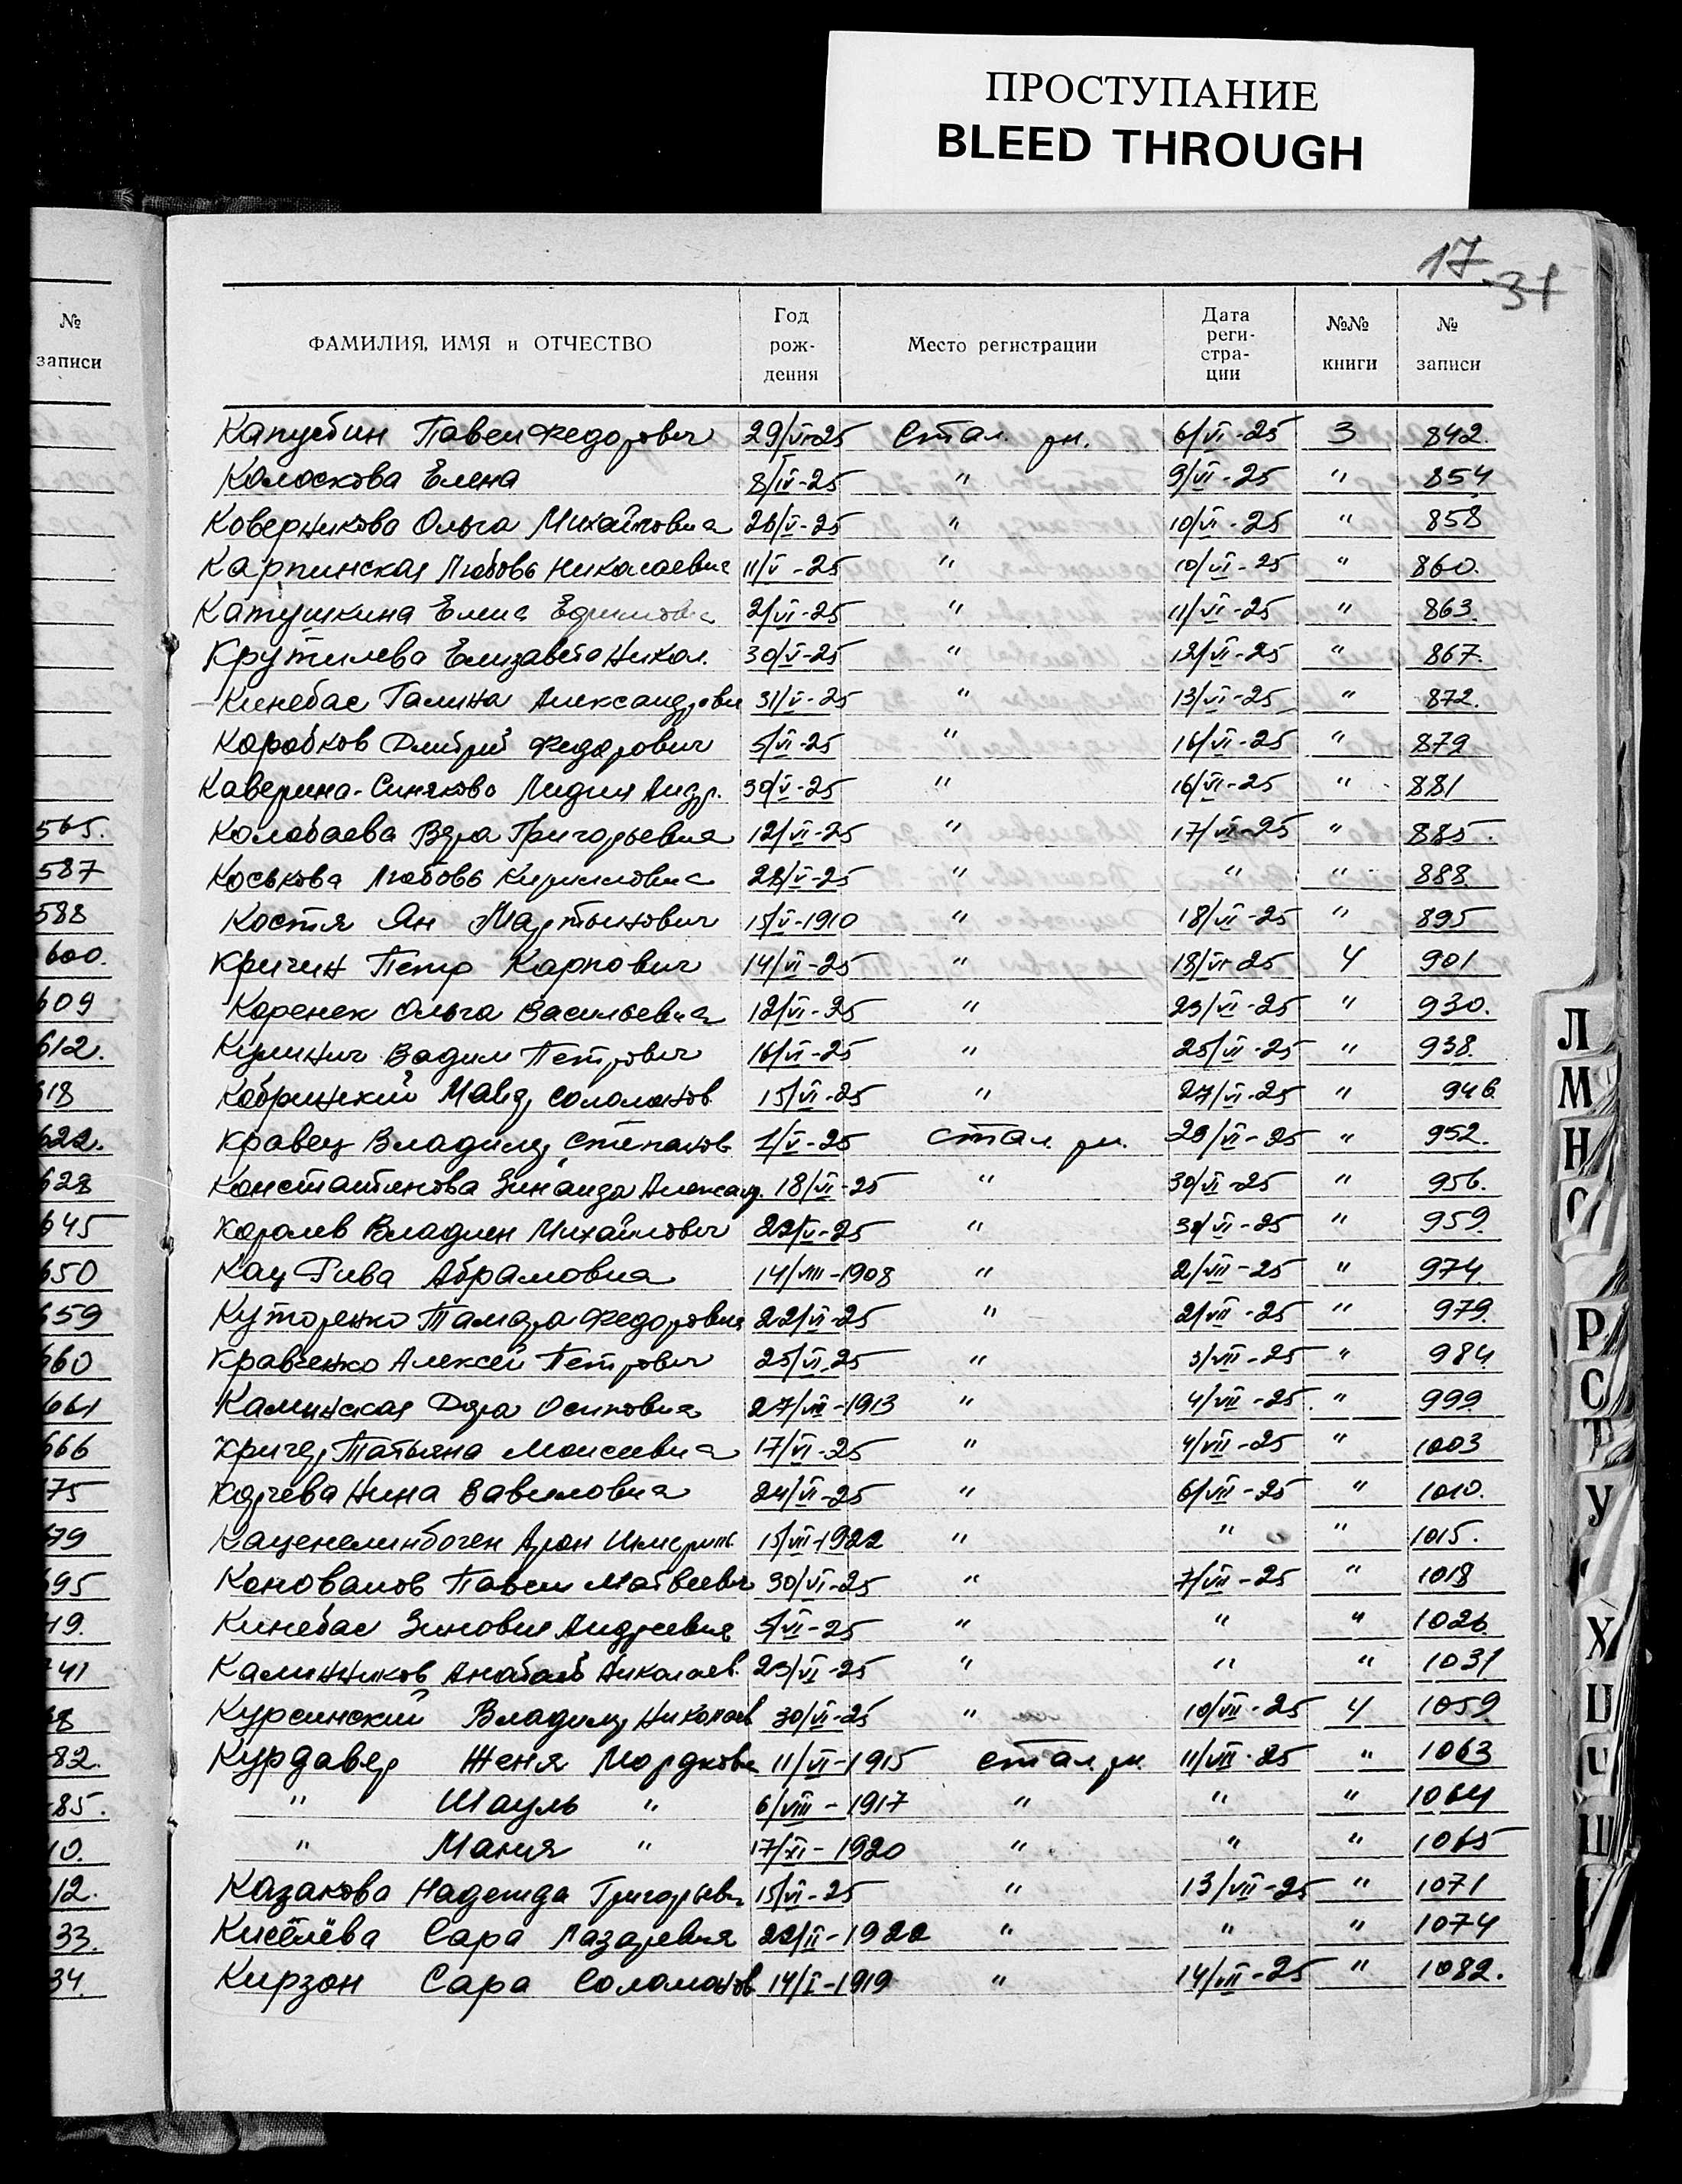 ПРОСТУПАНИЕ
BLEED THROUGH
17 31
№ записи
ФАМИЛИЯ, ИМЯ и ОТЧЕСТВО Год рож-дения Место регистрации Дата реги-стра-ции №№ книги № записи
Капустин Павел Федорович 29/VI-25 Стал. рн. 6/VI-25 3 842.
Колоскова Елена 8/IV-25 " 9/VI-25 " 854
Коверникова Ольга Михайловна 26/V-25 " 10/VI-25 " 858
Карпинская Любовь Николаевна 11/V-25 " 10/VI-25 " 860.
Катушкина Елена Ефимовна 2/VI-25 " 11/VI-25 " 863.
Крутилева Елизавета Никол. 30/V-25 " 12/VI-25 " 867.
Кинебас Галина Александровн 31/V-25 " 13/VI-25 " 872.
Коробков Дмитрий Федорович 5/VI-25 " 16/VI-25 " 879
Каверина-Синякова Лидия Андр. 30/V-25 " 16/VI-25 " 881
565. Колобаева Вера Григорьевна 12/VI-25 " 17/VI-25 " 885.
587 Коськова Любовь Кирилловна 28/V-25 " " " 888.
588 Костя Ян Мартынович 15/V-1910 " 18/VI-25 " 895
600. Кричин Петр Карпович 14/VI-25 " 18/VI-25 4 901
609 Коренек Ольга Васильевна 12/VI-25 " 23/VI-25 " 930.
612. Вадим Петрович 16/VI-25 " 25/VI-25 " 938.
618 Кобринский Соломонов. 15/VI-25 " 27/VI-25 " 946
622. Кравец Владимир Степанов 1/V-25 стал. рн. 29/VI-25 " 952.
628 Константинова Зинаида Александ. 18/VI-25 " 30/VI-25 " 956.
645 Королев Владлен Михайлович 22/V-25 " 30/VI-25 " 959.
650 Кац Рива Абрамовна 14/VIII-1908 " 2/VII-25 " 974
659 Куторенко Тамара Федоровна 22/VI-25 " 2/VII-25 " 979.
660 Кравченко Алексей Петрович 25/VI-25 " 3/VII-25 " 984
661 Каминская Дора Осиповна 27/VII-1913 " 4/VII-25. " 999.
666 Кричер Татьяна Моисеевна 17/VI-25 " 4/VII-25 " 1003
75 Корчева Нина Вавиловна 24/VI-25 " 6/VII-25 " 1010.
79 Каценеленбоген Арон 15/VII-1922 " " " 1015.
695 Коновалов Павел Матвеевич 30/VI-25 " 7/VII-25 " 1018
19. Кинебас Зиновия Андреевна 5/VI-25 " " " 1026.
741 Калинников Анатолий Николаев. 23/VI-25 " " " 1031
68 Курсинский Владимир Николаев 30/VI-25 " 10/VII-25 4 1059
82. Курдавер Женя Мордковн 11/VI-1915 стал. рн. 11/VII-25 " 1063
85. " Шауль " 6/VIII-1917 " " " 1064
10. " Маня " 17/XI-1920 " " " 1065
12. Казакова Надежда Григорьевн 15/VI-25 " 13/VII-25 " 1071
33. Киселёва Сара Лазаревна 22/II-1922 " " " 1074
34. Кирзон Сара Соломонов 14/I-1919 " 14/VII-25 " 1082.
Л
М
Н
О
Р
С
Т
У
Х
Ц
Ч
Ш